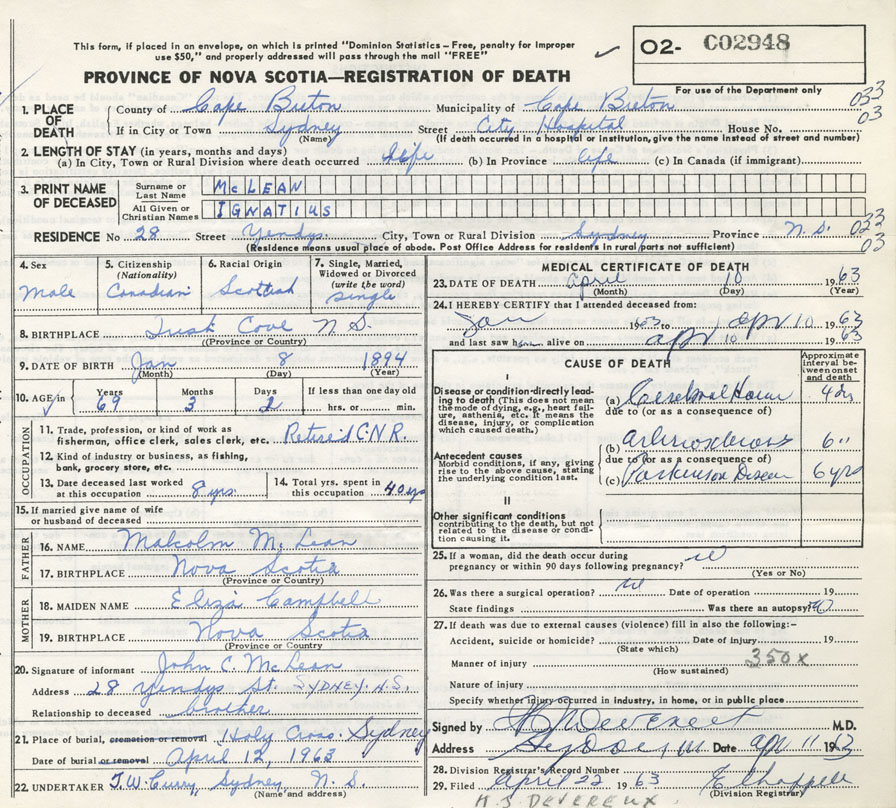 This form, if placed in an envelope, on which is printed "Dominion Statistics – Free, penalty for improper
use $50," and properly addressed will pass through the mail "FREE"
O2- C02948
PROVINCE OF NOVA SCOTIA—REGISTRATION OF DEATH
For use of the Department only
1. PLACE OF DEATH County of Cape Breton Municipality of Cape Breton 033
If in City or Town Sydney Street City Hospital House No. 03
(Name) (If death occurred in a hospital or institution, give the name instead of street and number)
2. LENGTH OF STAY (in years, months and days)
(a) In City, Town or Rural Division where death occurred life (b) In Province life (c) In Canada (if immigrant)
3. PRINT NAME OF DECEASED
Surname or Last Name McLEAN
All Given or Christian Names IGNATIUS
RESIDENCE No 28 Street Yendys City, Town or Rural Division Sydney Province N.S. 033
03
(Residence means usual place of abode. Post Office Address for residents in rural parts not sufficient)
4. Sex Male
5. Citizenship (Nationality) Canadian
6. Racial Origin Scottish
7. Single, Married, Widowed or Divorced (write the word) single
8. BIRTHPLACE Cove N S.
(Province or Country)
9. DATE OF BIRTH Jan 8 1894
(Month) (Day) (Year)
10. AGE in Years 69 Months 3 Days 2 If less than one day old hrs. or min.
OCCUPATION
11. Trade, profession, or kind of work as
fisherman, office clerk, sales clerk, etc. Retired C.N.R.
12. Kind of industry or business, as fishing,
bank, grocery store, etc.
13. Date deceased last worked at this occupation 8 yrs.
14. Total yrs. spent in this occupation 40 yrs
15. If married give name of wife
or husband of deceased
FATHER
16. NAME Malcolm McLean
17. BIRTHPLACE Nova Scotia
(Province or Country)
MOTHER
18. MAIDEN NAME Eliza Campbell
19. BIRTHPLACE Nova Scotia
(Province or Country
20. Signature of informant John C. McLean
Address 28 Yendys St. SYDNEY. N.S.
Relationship to deceased brother
21. Place of burial, cremation or removal Holy Cross. Sydney
Date of burial or removal April 12, 1963
22. UNDERTAKER T.W. Curry, Sydney, N. S.
(Name and address)
MEDICAL CERTIFICATE OF DEATH
23. DATE OF DEATH April 10 1963
(Month) (Day) (Year)
24. I HEREBY CERTIFY that I attended deceased from:
Jan 1963 to Apr 10 1963
and last saw h alive on apr 10 1963
CAUSE OF DEATH
Approximate interval between onset and death
I
Disease or condition-directly leading to death (This does not mean the mode of dying, e.g., heart failure, asthenia, etc. It means the disease, injury, or complication which caused death.)
(a) Cerebral 4
due to (or as a consequence of)
Antecedent causes
Morbid conditions, if any, giving rise to the above cause, stating the underlying condition last.
(b) 6 "
due to (or as a consequence of)
(c) Parkinson Disease 6 yrs
II
Other significant conditions
contributing to the death, but not related to the disease or condition causing it.
25. If a woman, did the death occur during
pregnancy or within 90 days following pregnancy?
(Yes or No)
26. Was there a surgical operation? Date of operation 19
State findings Was there an autopsy? no
27. If death was due to external causes (violence) fill in also the following:–
Accident, suicide or homicide? Date of injury 19
(State which)
Manner of injury 350x
(How sustained)
Nature of injury
Specify whether injury occurred in industry, in home, or in public place
Signed by Devereux M.D.
Address Sydney Date apr 11 1963
28. Division Registrar's Record Number
29. Filed April 22 1963 E Chappell
(Division Registrar)
H. J DEVEREUX